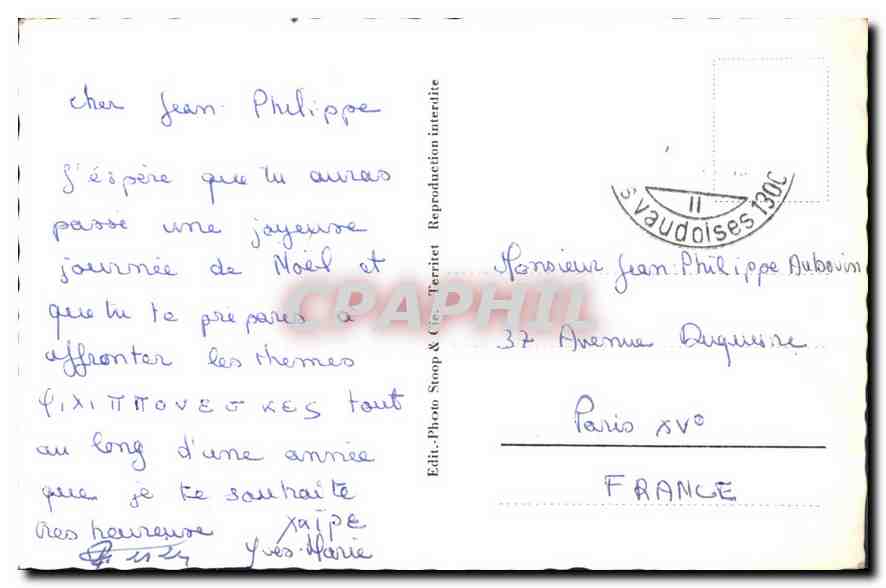 cher Jean-Philippe
J'espère que tu auras
passé une joyeuse
journée de Noël et
que tu te prépares à
affronter les themes
φιλιππονεσκες tout
au long d'une année
que je te souhaite
très heureuse χαῖρε
Yves-Marie
Edit.-Photo Stoop & Cie. Territet Reproduction interdite
II
s vaudoises 1300
Monsieur Jean-Philippe Aubovin
37 Avenue
Paris XV°
FRANCE
CPAPHIL